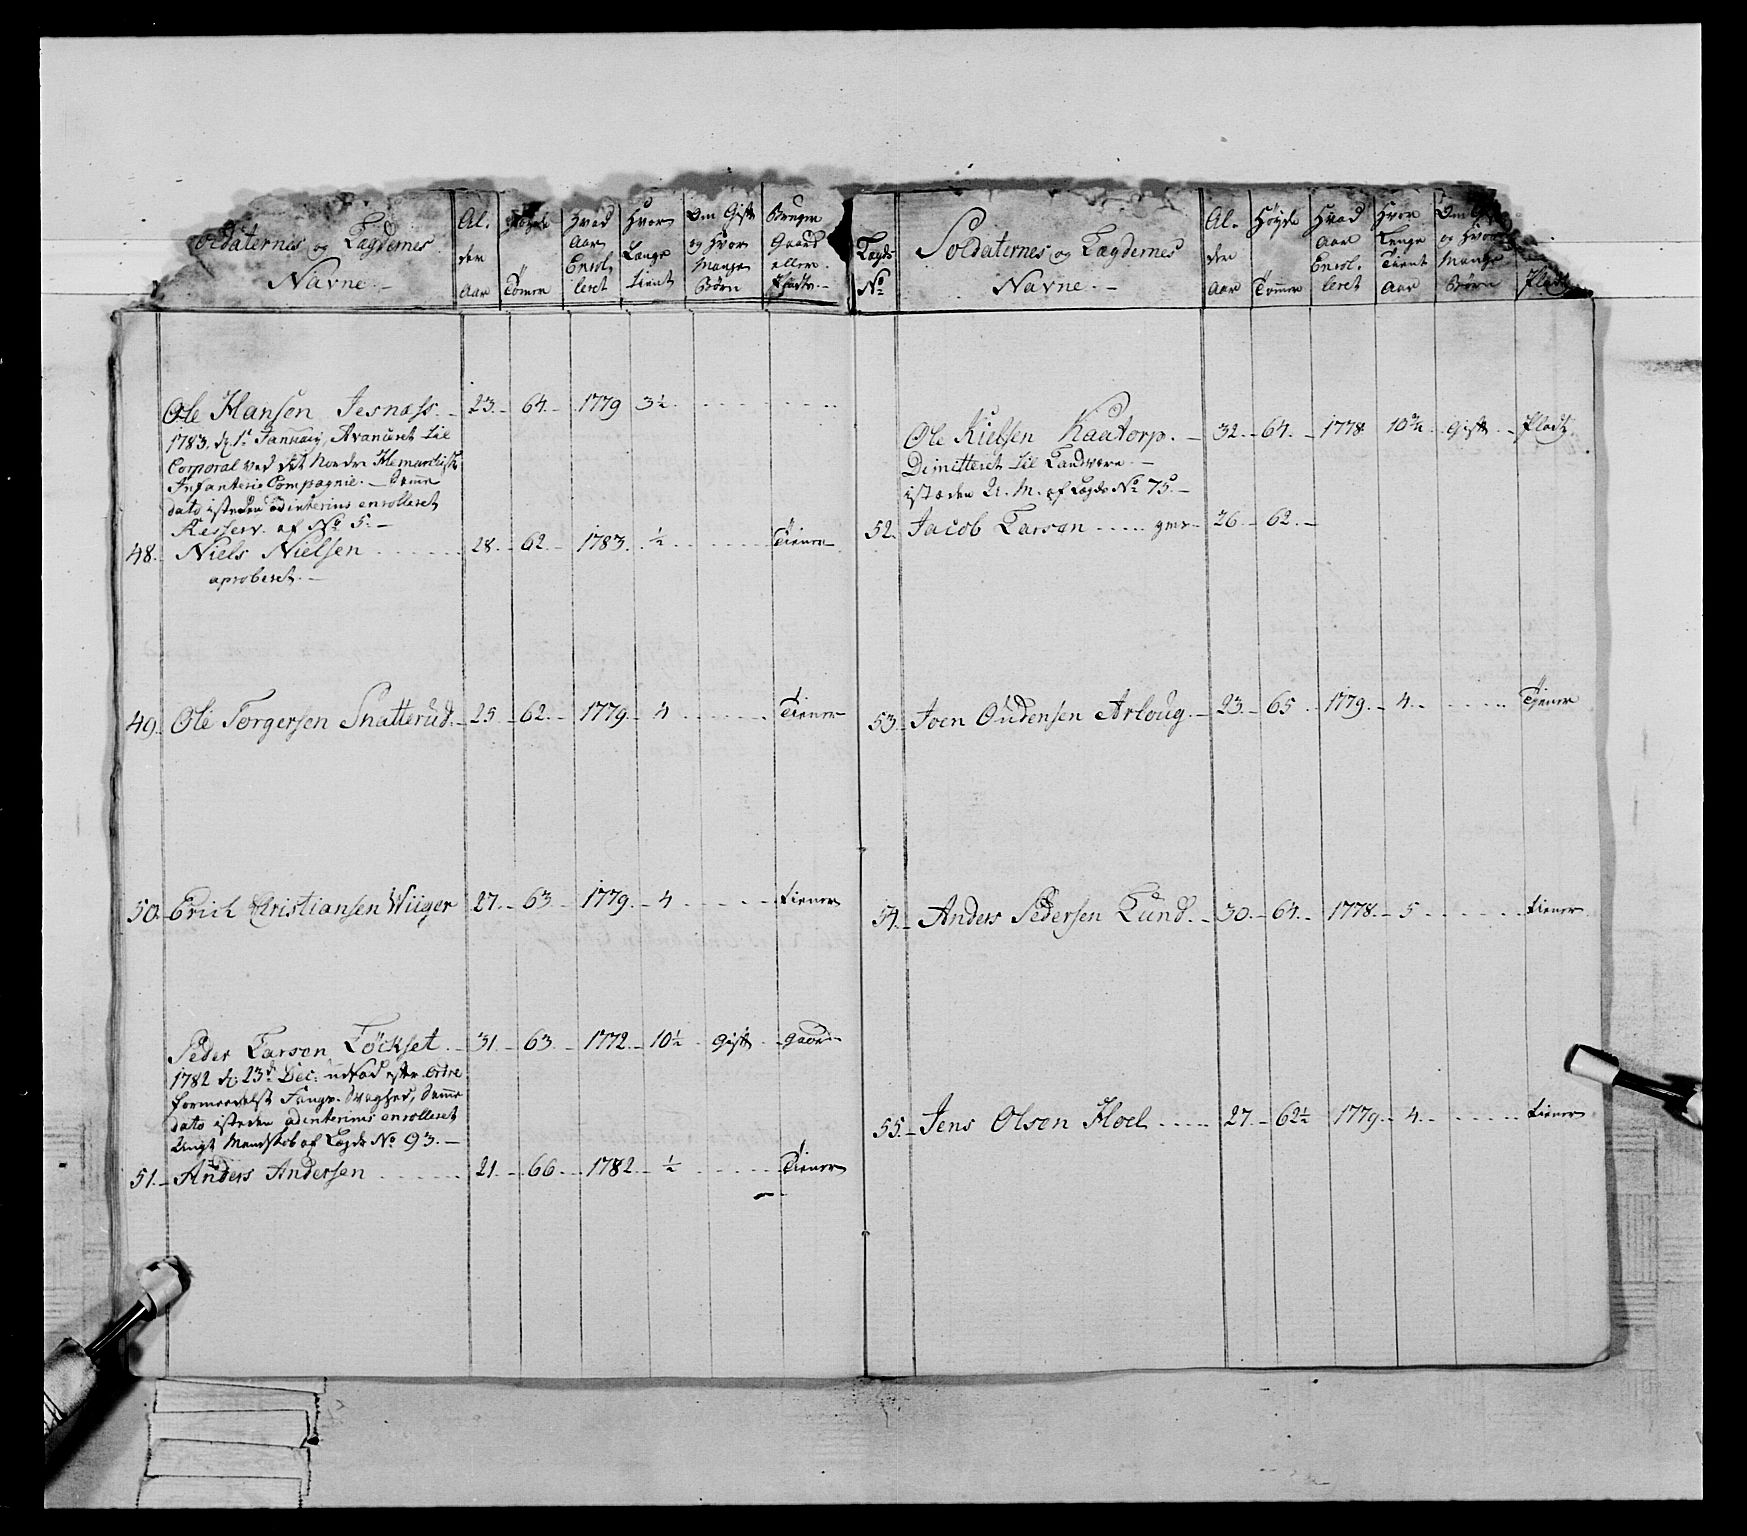 Soldaternes og Lægdernes
Navne.
Al-
der
Aar
Høyde
Tomer
Hvad
Aar
Enrol-
leret
Hvor
Længe
tient
Om Gift
og Hvor
Mange
Børn
Bruger
Gaard
eller
Plads.
Ole Hansen Jesnæss. 23. 64. 1779 3½
1783. d. 1t. Januarij, Avanceret til
Corporal ved det Nordre Hemarchsk
Infanterie Compagnie. Samme
dato isteden ad interims enrolleret
Reserv. af No 5.
48. Niels Nielsen 28. 62. 1783. ½ Tiener
aproberet.
49. Ole Torgersen Snatterud. 25. 62. 1779. 4 Tiener
50. Erich Christiansen Wiiger 27. 63. 1779. 4 tiener
Peder Larson Löckset 31. 63. 1772. 10½ Gift gaard
1782 d. 23d. Dec: udstød efter ordre
formedelst Svaghed, Samme
dato isteden ad interims enrolleret
Ungt Mandskab af Lægds No 93.
51. Anders Andersen 21. 66. 1782. ½ Tiener
Lægds
No
Soldaternes og Lægdernes
Navne.
Al-
der
Aar
Høyde
Tommer
Hvad
Aar
Enrol-
leret
Hvor
Lenge
Tient
Aar
Om
og Hvor
Mange
Børn
Plads
Ole Nielsen Kaatorp. 32. 64. 1778 10¾ Gift Plads
Dimitteret til Landværn.
isteden U. M. af Lægds No 75.
52. Jacob Larson 26. 62.
53. Joen Oudensen Arloug. 23. 65 1779. 4. Tjener
54. Anders Pedersen Lund. 30. 64. 1778. 5 tiener
55. Jens Olson Hoel 27. 62½ 1779. 4. tiener